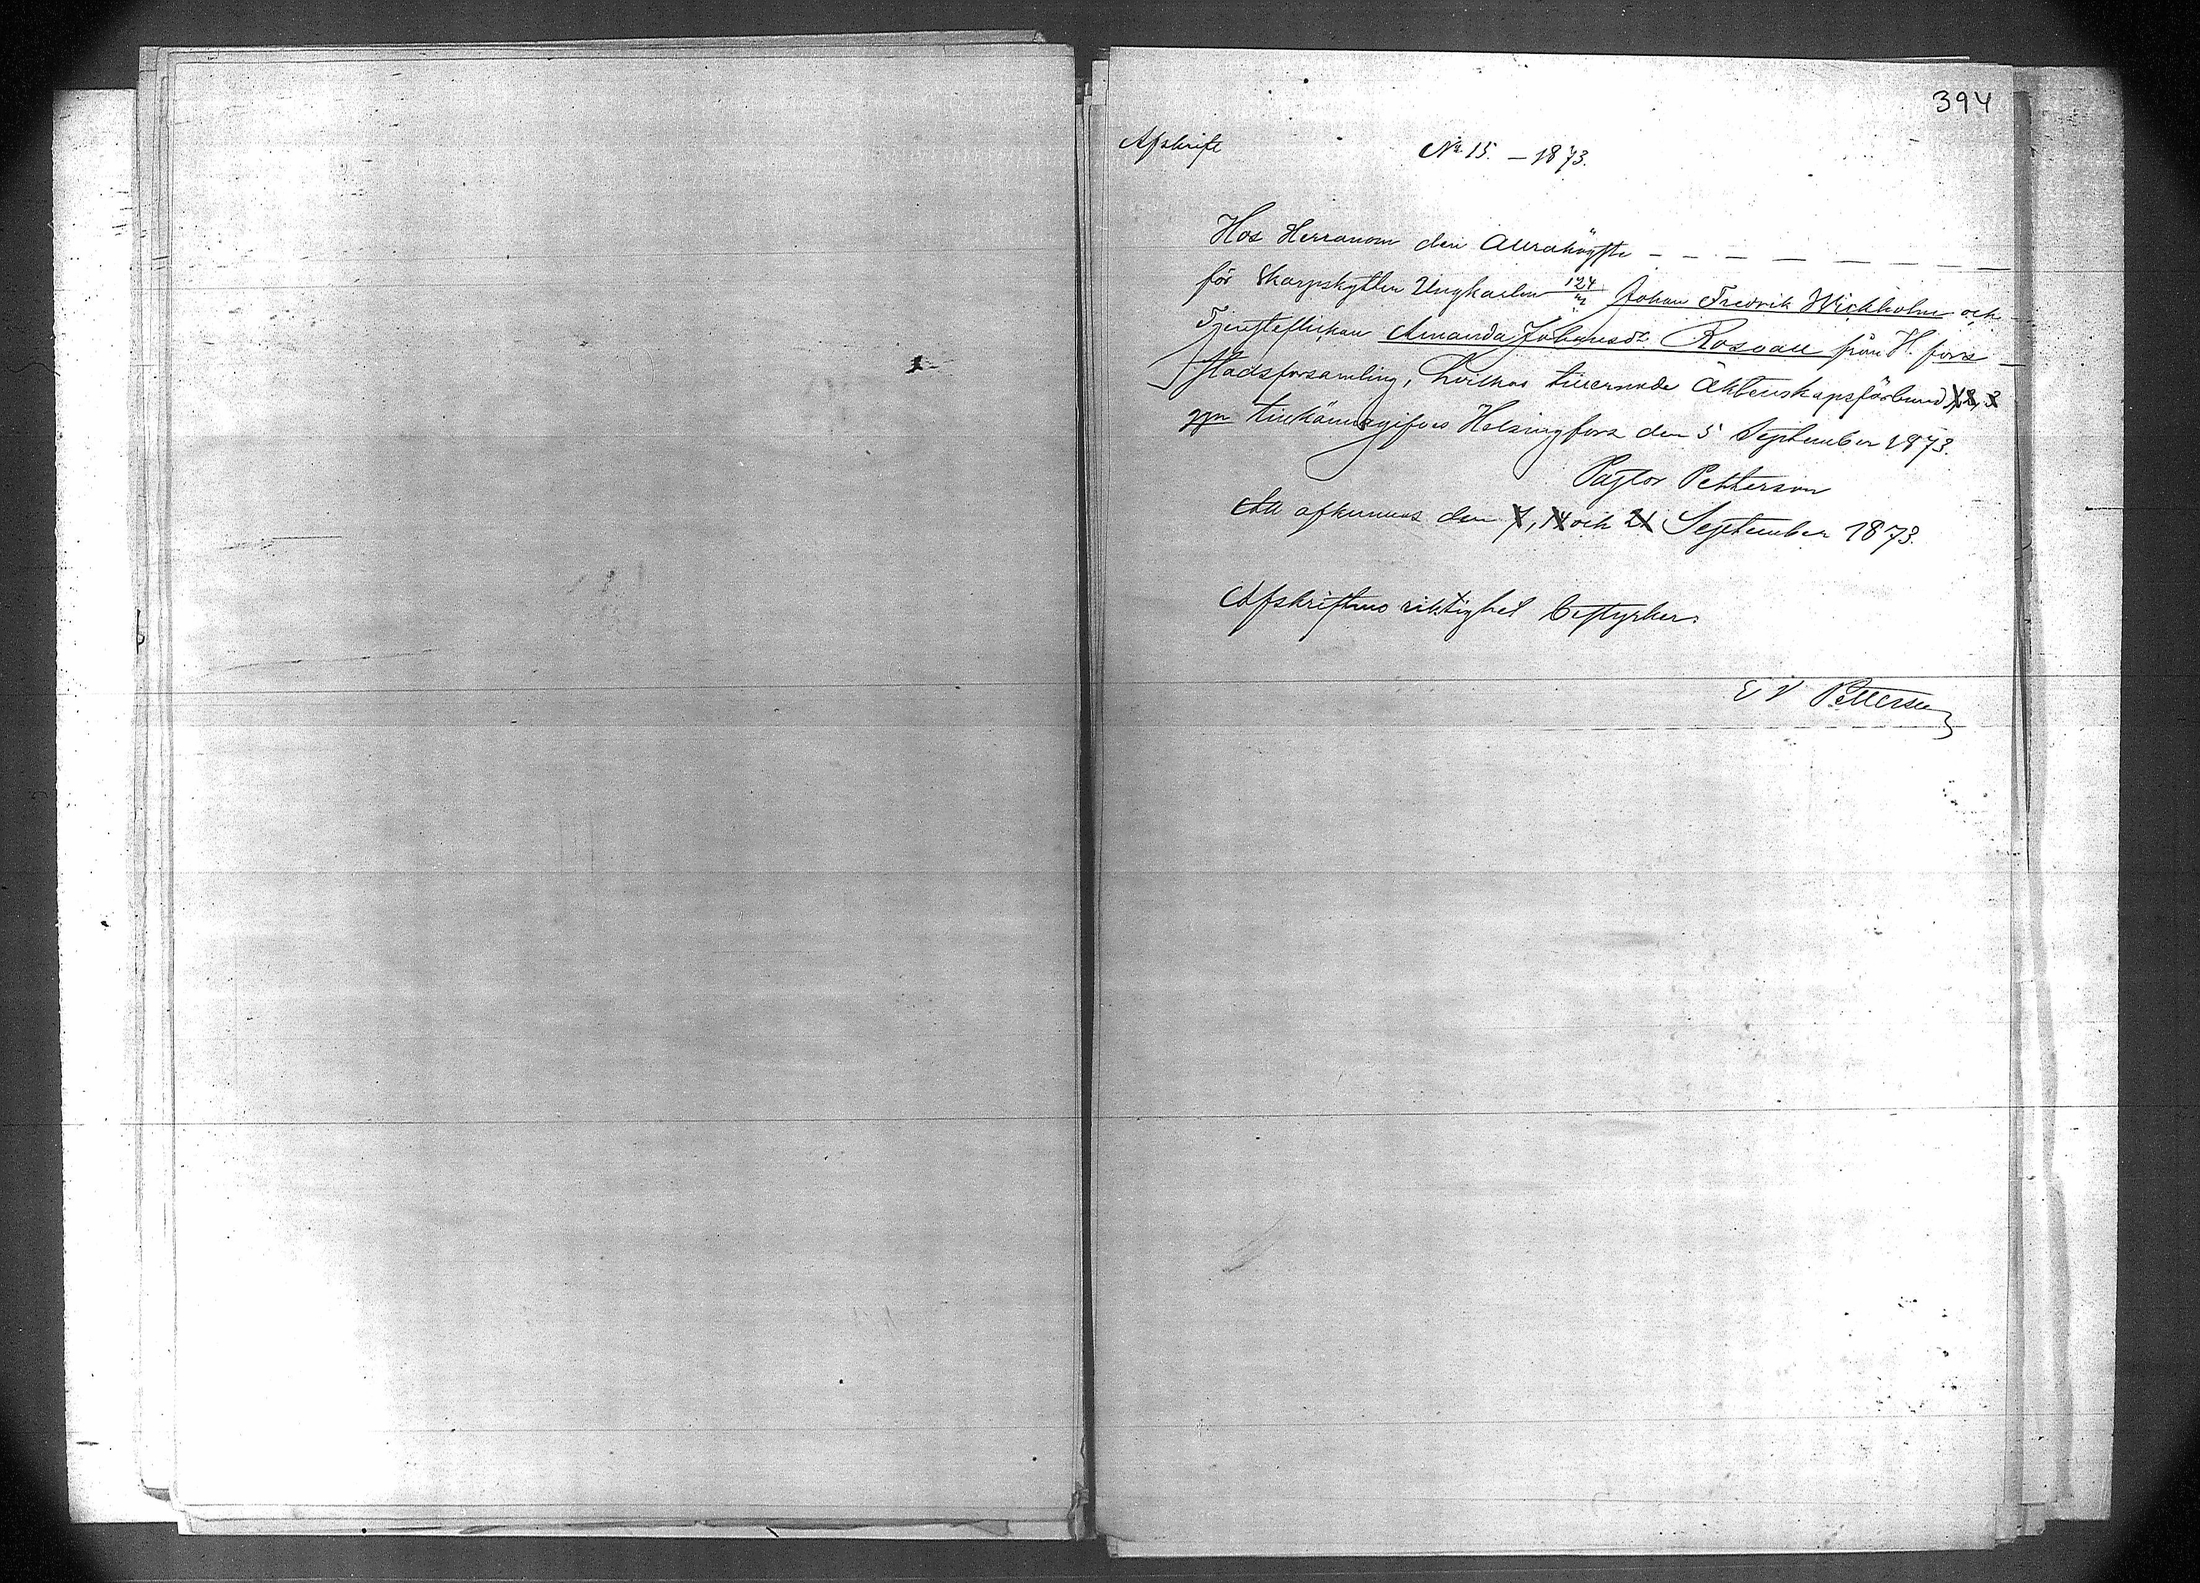 394
Afskrift
No 15. – 1873.
Hos Herranom den Allrahögste – – – – – –
för Skarpskytten Ungkarlen 124 Johan Fredrik Wickholm och
Tjensteflickan Amanda Johansdr Rosvall från H.fors
Stadsförsamling, hvilkas tillernade Äktenskapsförbund 1, 2, 3
ggn tillkännagifves Helsingfors den 5 September 1873.
Pastor Petterson
Att afkunnas den 7, 14 och 21 September 1873.
Afskriftens riktighet bestyrker:
E V Petterson